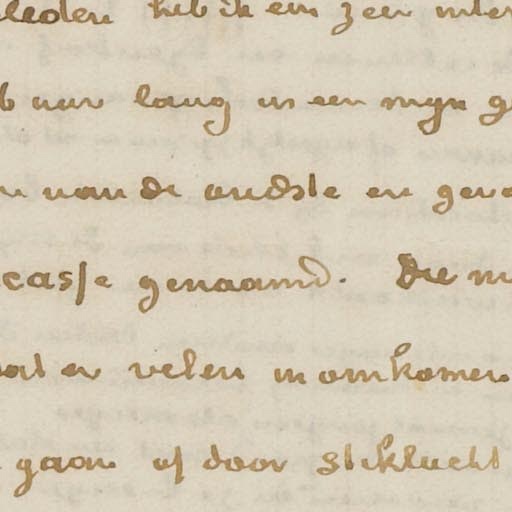 leden heb ik een zeer inter
b uur lang in een mijn g
n van de oudste en geva
casse genaamd. Die m
dat er velen in omkomen
gaan of door stiklucht